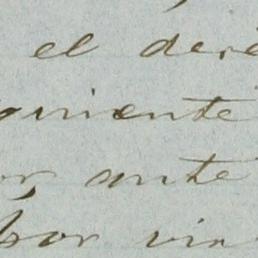 el dere
guiente
or, ante
por via